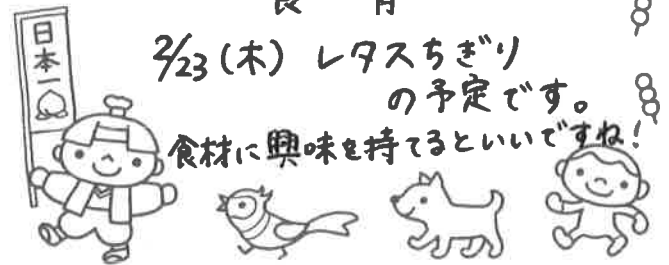 食育
日本一
2/23(木) レタスちぎり
の予定です。
食材に興味を持てるといいですね!